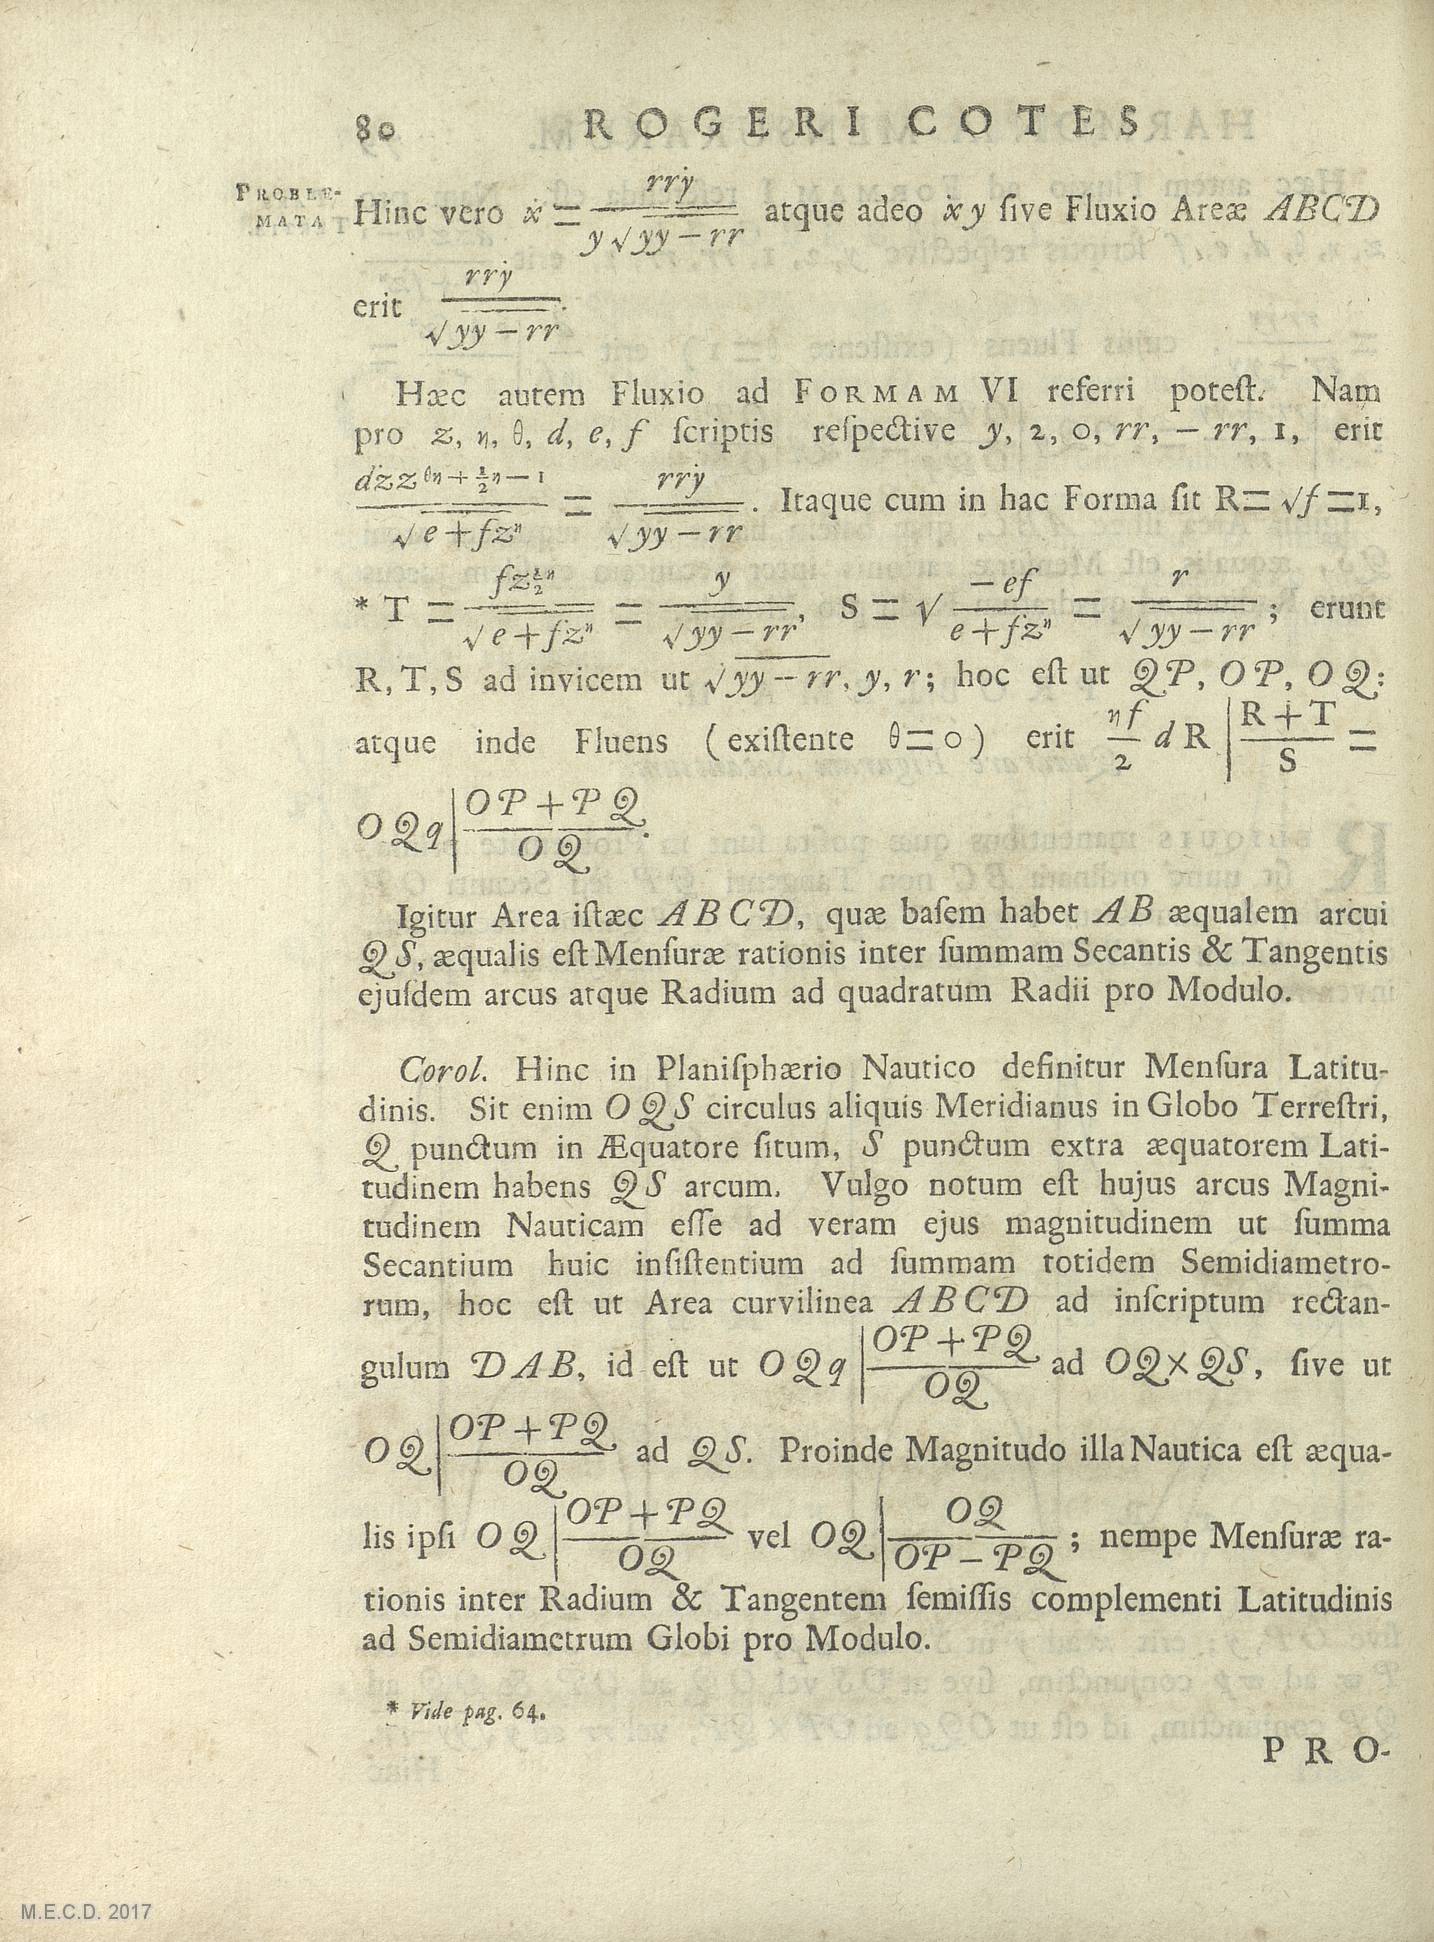 80 ROGERI COTES
PROBLE-
MATA
Hinc vero ẋ = rrẏ / y√yy − rr atque adeo ẋy ſive Fluxio Areæ ABCD
erit rrẏ / √yy − rr.
Hæc autem Fluxio ad FORMAM VI referri poteſt. Nam
pro z, η, θ, d, e, f ſcriptis reſpective y, 2, 0, rr, − rr, 1, erit
dżz^θη + ½η − 1 / √e + fz^η = rrẏ / √yy − rr. Itaque cum in hac Forma ſit R = √f = 1,
* T = fz^½η / √e + fz^η = y / √yy − rr, S = √ −ef / e + fz^η = r / √yy − rr; erunt
R, T, S ad invicem ut √yy − rr, y, r; hoc eſt ut QP, OP, OQ:
atque inde Fluens (exiſtente θ = 0) erit ηf / 2 dR | R + T / S =
OQq | OP + PQ / OQ.
Igitur Area iſtæc ABCD, quæ baſem habet AB æqualem arcui
QS, æqualis eſt Menſuræ rationis inter ſummam Secantis & Tangentis
ejuſdem arcus atque Radium ad quadratum Radii pro Modulo.
Corol. Hinc in Planiſphærio Nautico definitur Menſura Latitu-
dinis. Sit enim OQS circulus aliquis Meridianus in Globo Terreſtri,
Q punctum in Æquatore ſitum, S punctum extra æquatorem Lati-
tudinem habens QS arcum. Vulgo notum eſt hujus arcus Magni-
tudinem Nauticam eſſe ad veram ejus magnitudinem ut ſumma
Secantium huic inſiſtentium ad ſummam totidem Semidiametro-
rum, hoc eſt ut Area curvilinea ABCD ad inſcriptum rectan-
gulum DAB, id eſt ut OQq | OP + PQ / OQ ad OQ × QS, ſive ut
OQ | OP + PQ / OQ ad QS. Proinde Magnitudo illa Nautica eſt æqua-
lis ipſi OQ | OP + PQ / OQ vel OQ | OQ / OP − PQ; nempe Menſuræ ra-
tionis inter Radium & Tangentem ſemiſſis complementi Latitudinis
ad Semidiametrum Globi pro Modulo.
* Vide pag. 64.
PRO-
M.E.C.D. 2017